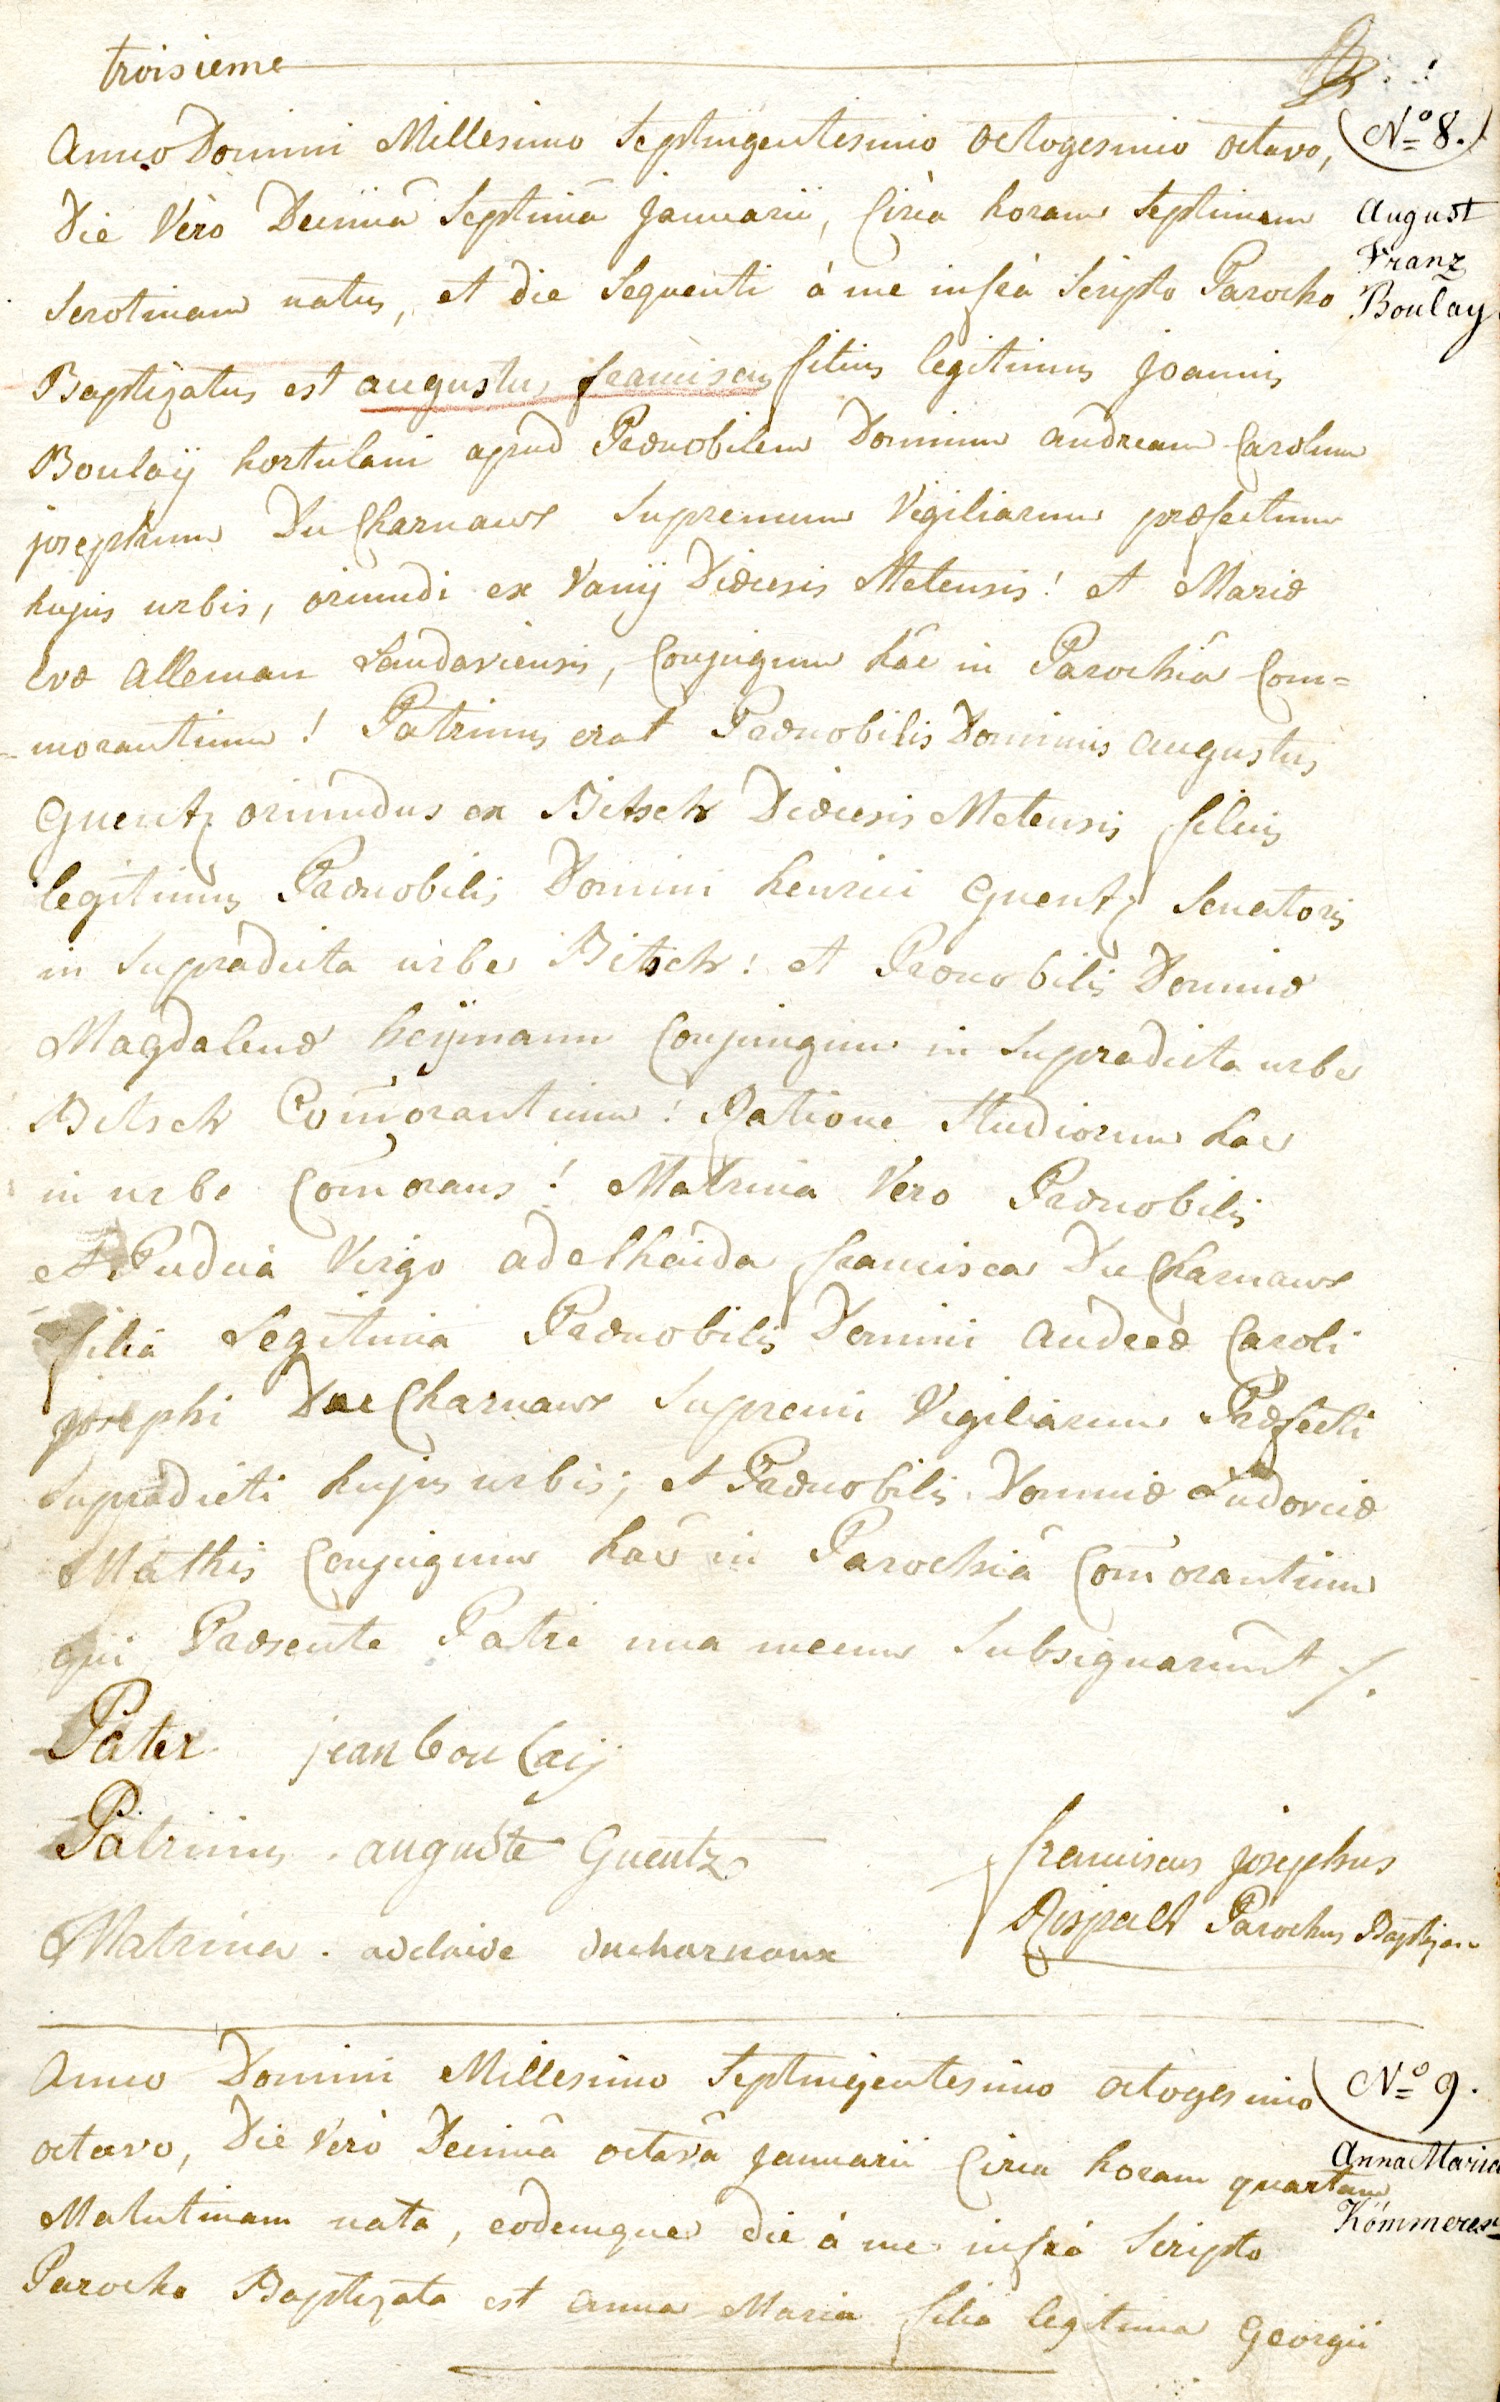 troisieme
Anno Domini Millesimo Septingentesimo octogesimo octavo,
(N<sup>o</sup> 8.)
Die Vèro Decimâ Septimâ Januarii, Circa horam Septimam
August
Franz
Boulay
Serotinam natus, et die Sequenti à me infrà Scripto Parocho
Baptizatus est augustus franciscus filius legitimus Joannis
Boulaÿ hortulani apud Prænobilem Dominum andream Carolum
josephum Du Charnaux Supremum Vigiliarum præfectum
hujus urbis, oriundi ex Vanÿ Diœcesis Metensis! et Mariæ
Evæ Alleman Landaviensis, Conjugum hâc in Parochiâ Com=
=morantium! Patrinus erat Prænobilis Dominus augustus
Guentz oriundus ex Bitsch Diœcesis Metensis filius
legitimus Prænobilis Domini henrici Guentz Senatoris
in Supradicta urbe Bitsch! et Prænobilis Dominæ
Magdalenæ heÿmann Conjugum in Supradicta urbe
Bitsch Com̄orantium! Ratione Studiorum hac
in urbe Com̄orans! Matrina Vero Prænobilis
et Pudica Virgo adelhaida francisca Du Charnaux
filia Legitima Prænobilis Domini andreæ Caroli
josephi Du Charnaux Supremi Vigiliarum Præfecti
Supradicti hujus urbis; et Prænobilis Dominæ Ludovicæ
Mathis Conjugum hâc in Parochiâ Com̄orantium
qui Præsente Patre una mecum Subsignarunt /.
Pater jean boulaÿ
Patrinus . auguste Guentz
franciscus josephus
Rispalt Parochus Baptizans
Matrina . adelaide ducharnaux
Anno Domini Millesimo Septingentesimo octogesimo
(N<sup>o</sup> 9.
octavo, Die Verò Decimâ octavâ Januarii Circa horam quartam
Anna Maria
Kömmerer
Matutinam nata, eodemque die à me infrà Scripto
Parocho Baptizata est Anna Maria filia legitima Georgii